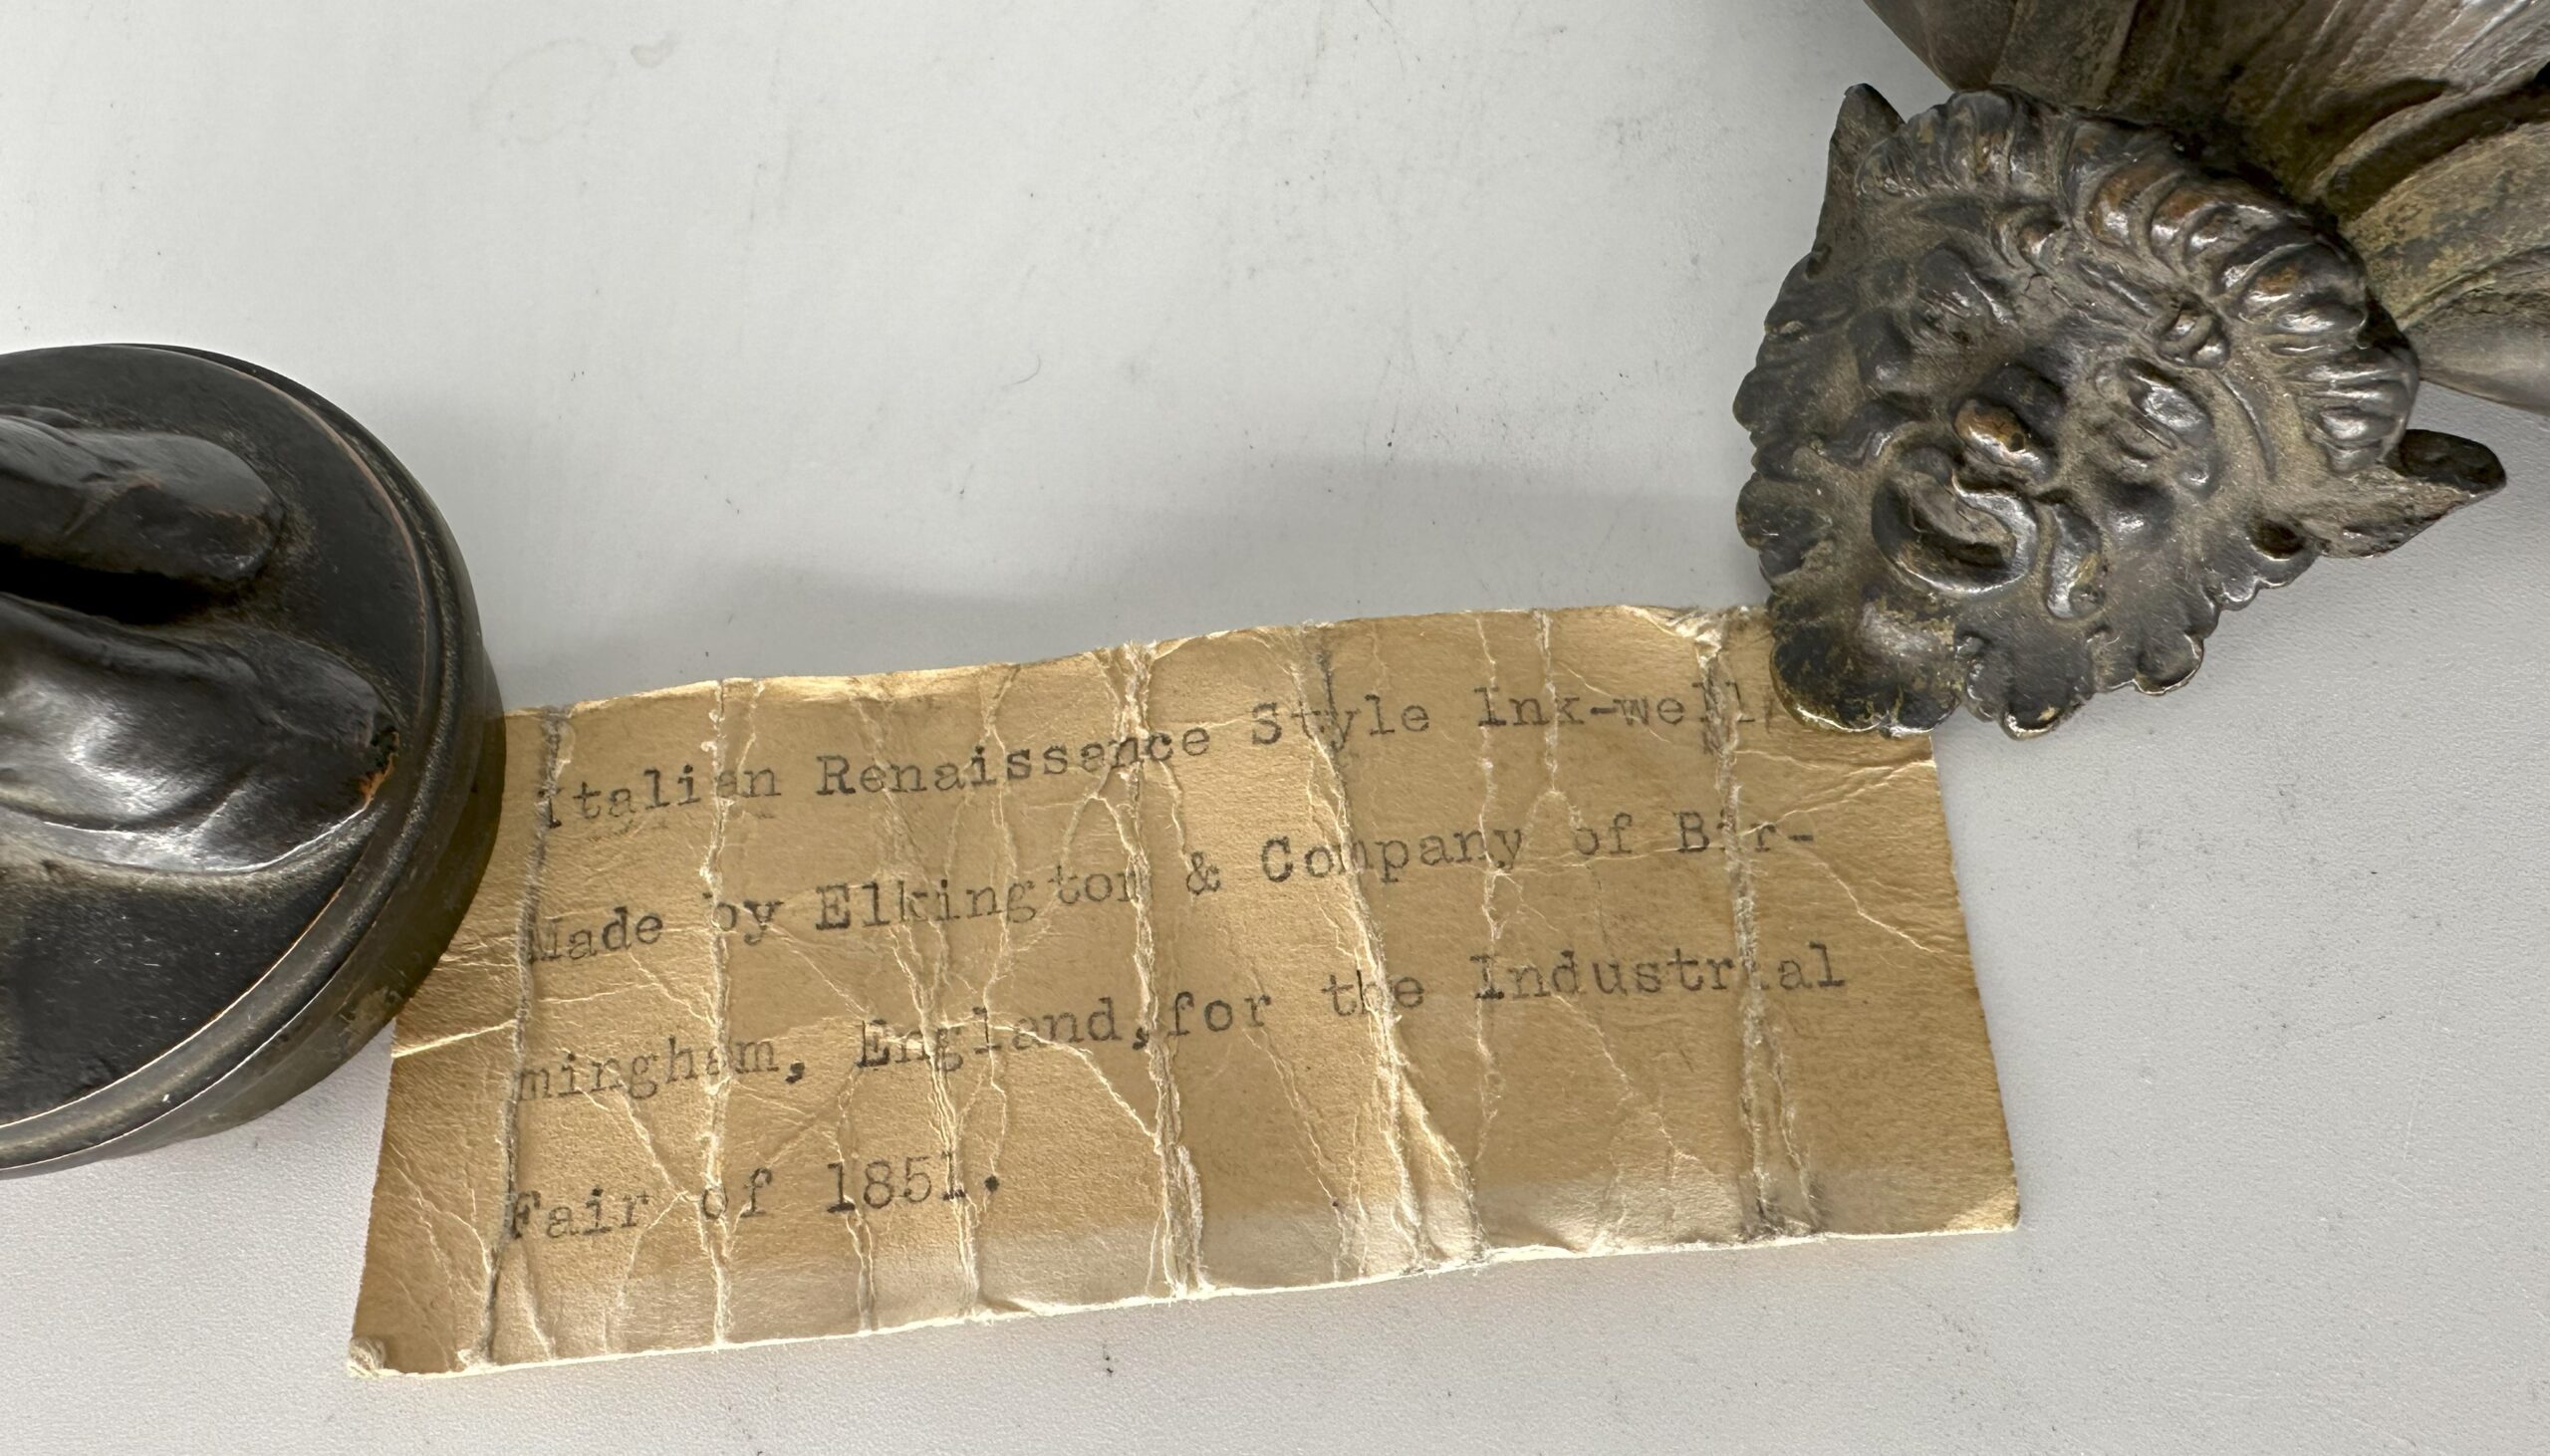 Italian Renaissance Style Ink-well
Made by Elkington & Company of Bir-
mingham, England,for the Industrial
Fair of 1851.